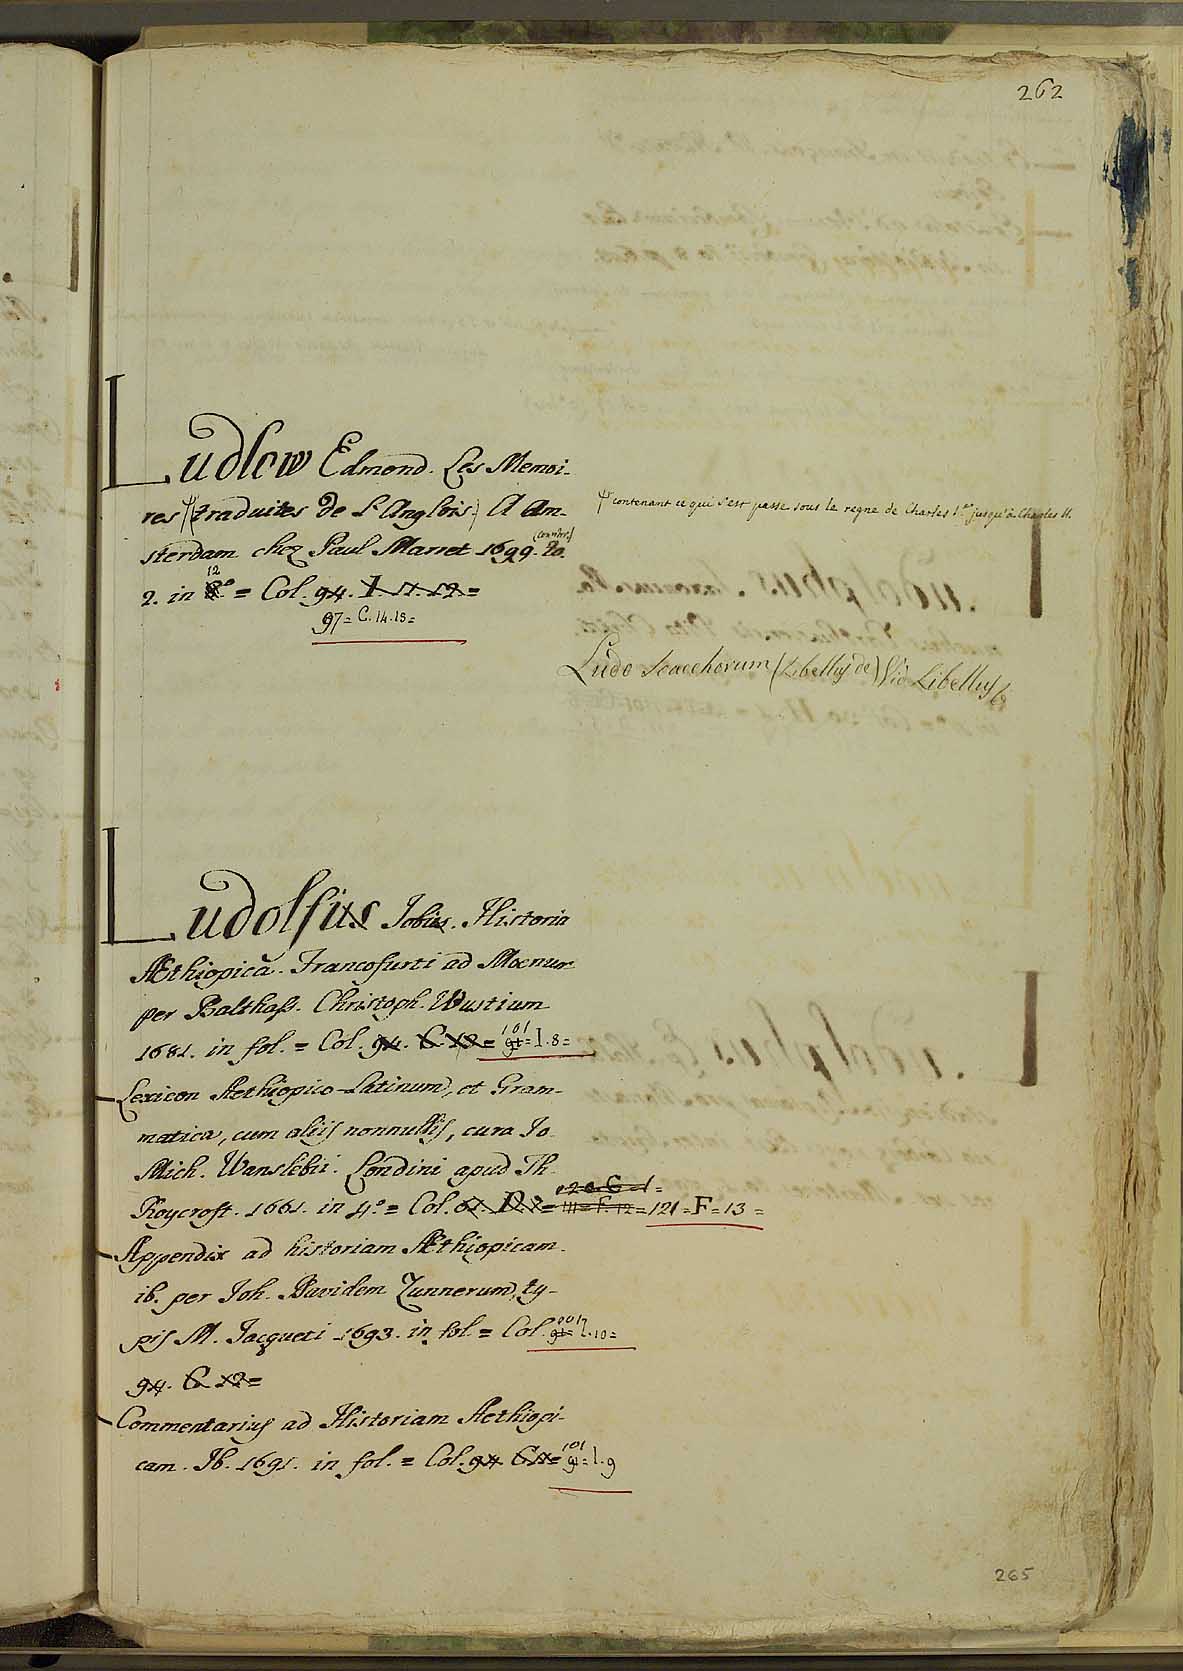 262
Ludlow Edmond. Les Memoi-
res Ψ (traduites de l'Anglois:) A Am-
sterdam chez Paul Marret 1699. To.
2. in 8.º = Col. 94. I. 11. 12 =
12
97 = C. 14. 15 =
Ψ contenant ce qui s'est passe sous le regne de Charles I.er jusqu'à Charles II.
Ludo Scacchorum (Libellus de) Vid Libellus &
Ludolfus Jobus. Historia
Æthiopica. Francofurti ad Moenum
per Balthass. Christoph. Wustium
1681. in fol. = Col. 94. C. 12 = 101 91 = I. 8 =
Lexicon Aethiopico-Latinum, et Gram-
matica, cum aliis nonnullis, cura Jo.
Mich. Wanslebii. Londini apud Th.
Roycroft. 1661. in 4.º = Col. 61. D. 2 = 111 = F. 12 = 121 = F = 13 =
120. G. 1 =
Appendix ad historiam Æthiopicam.
ib. per Joh. Davidem Zunnerum, ty-
pis M. Jacqueti 1693. in fol. = Col. 101 91 = I. 10 =
94. C. 12 =
Commentarius ad Historiam Aethiopi-
cam. Ib. 1691. in fol. = Col. 94. C. 11 = 101 91 = I. 9
265